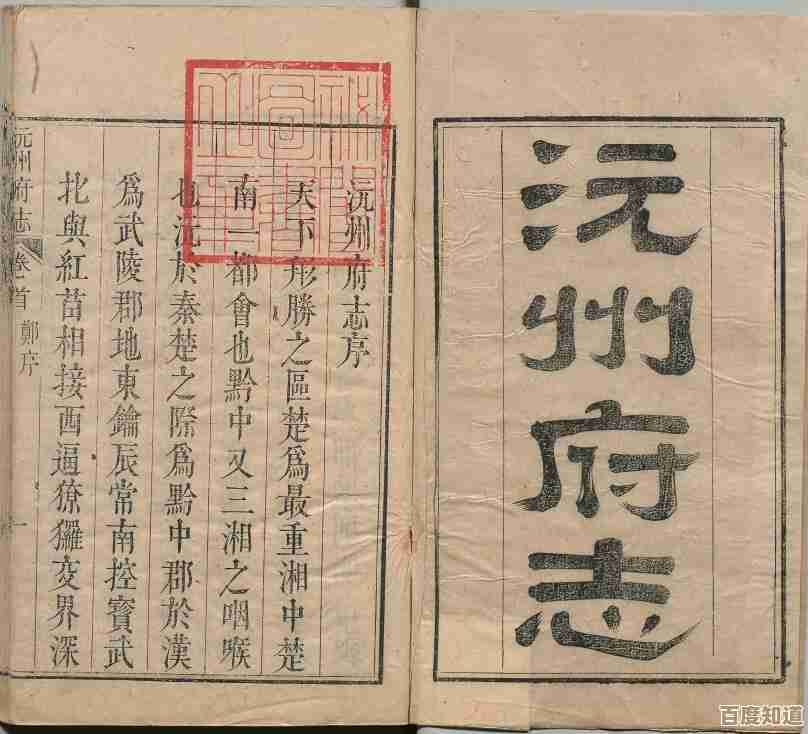 沅州府志
沅州府志序
天下形勝之區楚爲最重湘中楚
南一都會也黔中又三湘之咽喉
也沅於秦楚之際爲黔中郡於漢
爲武陵郡地東鑰辰常南控寶武
北與紅苗相接西逼獠玀交界深
沅州府志 卷首 鄭序 一
百度知道